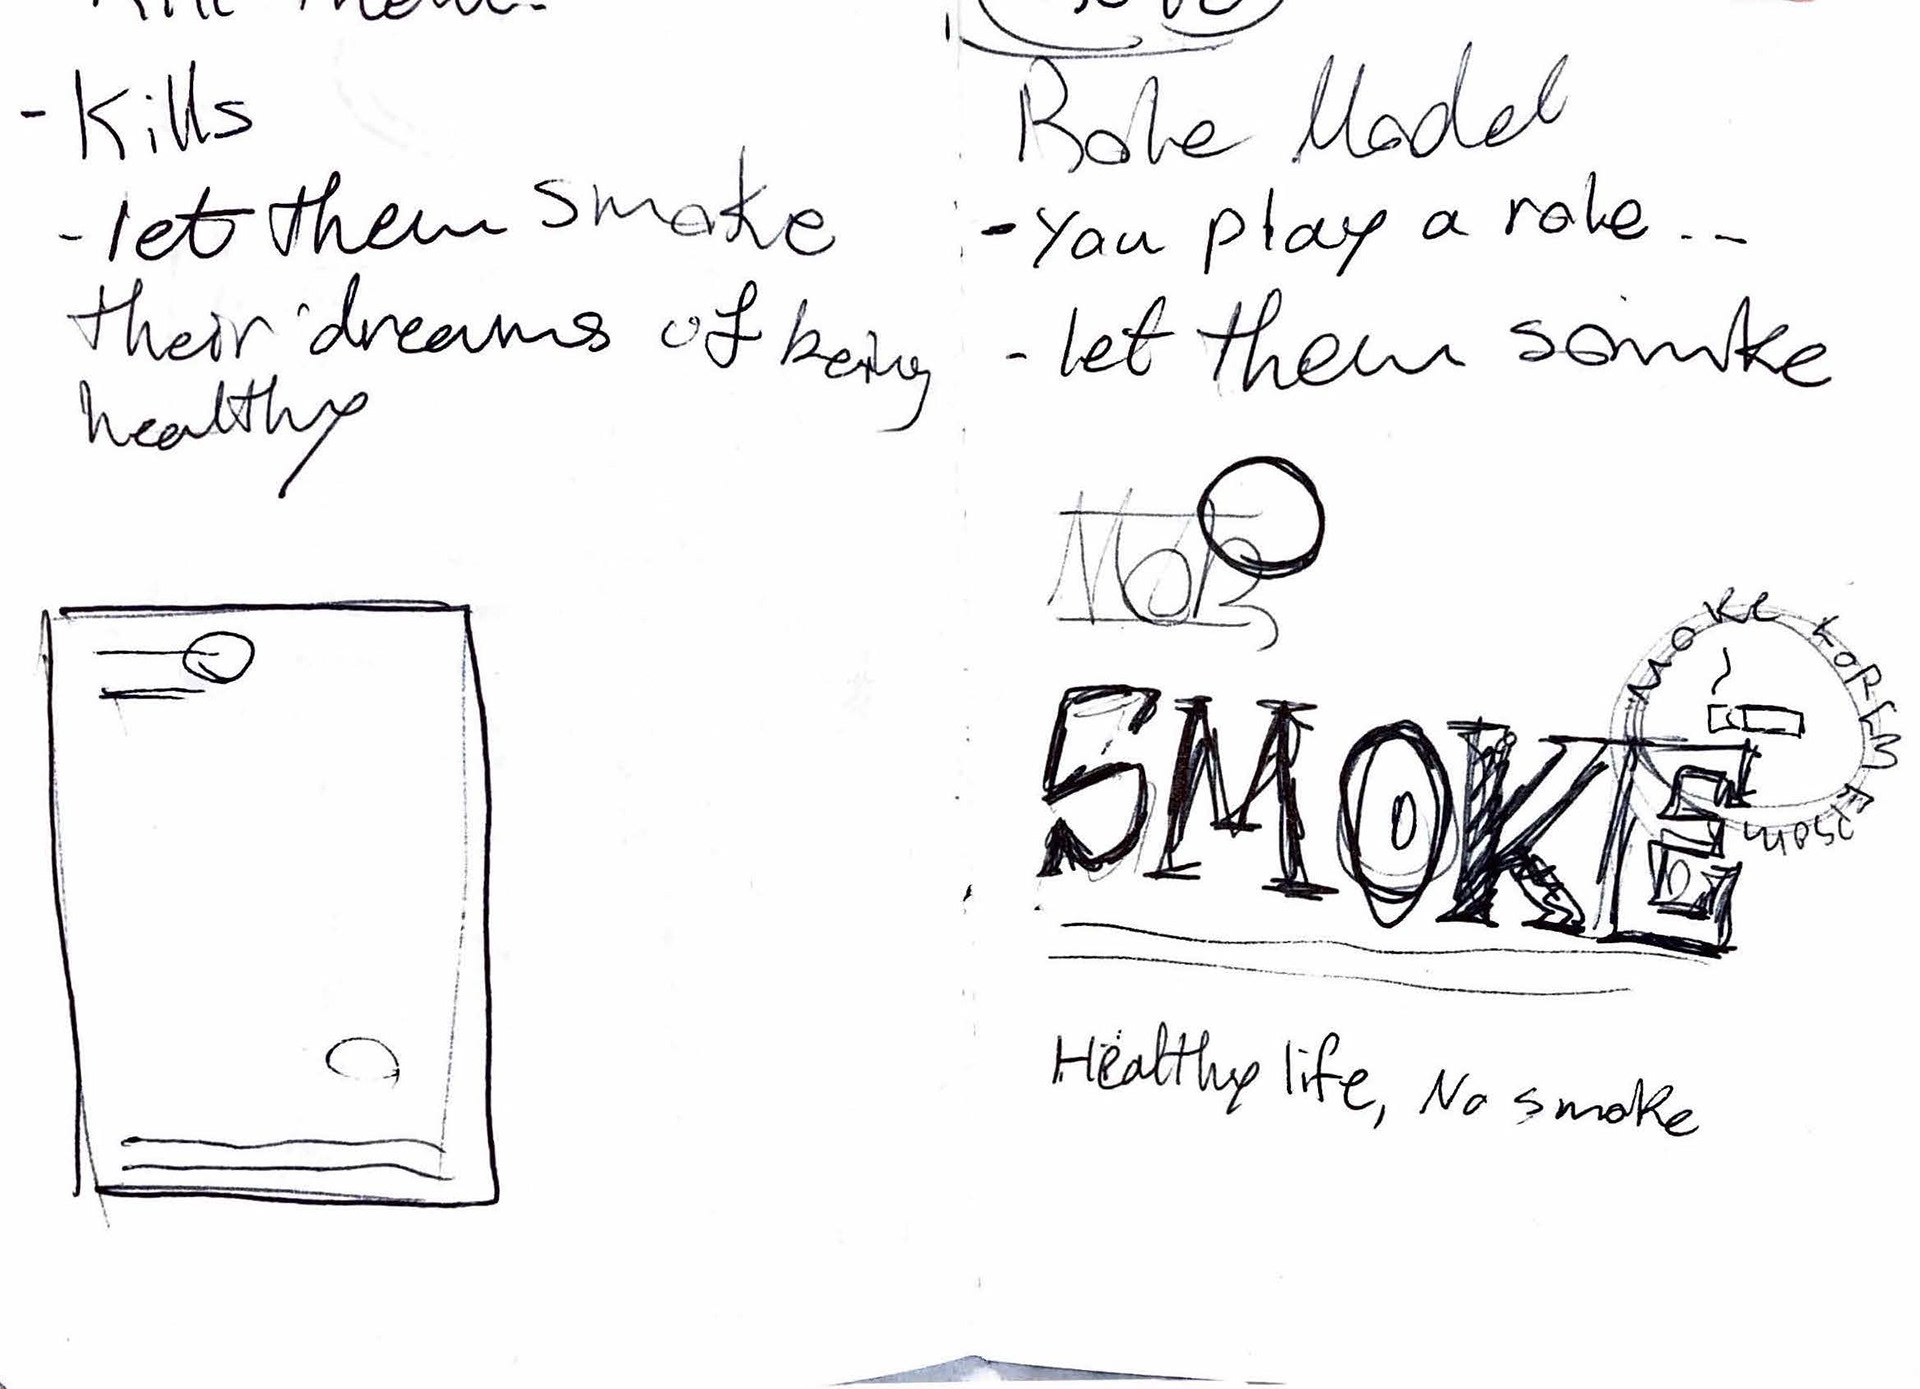 - Kills
- let them smoke
their dreams of being
healthy
Role Model
- You play a role...
- let them somke
SMOKE
Healthy life, No smoke